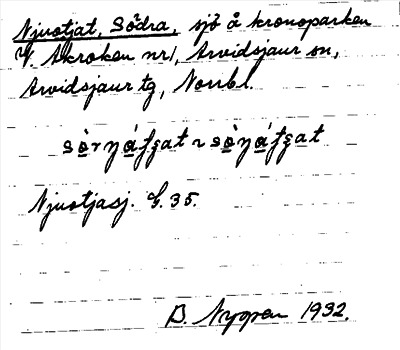 Njuotjat, Södra, sjö å kronoparken
V. Akroken nr 1, Arvidsjaur sn,
Arvidsjaur tg, Norrbl.
Njuotjasj. G. 35.
B. Nygren 1932.